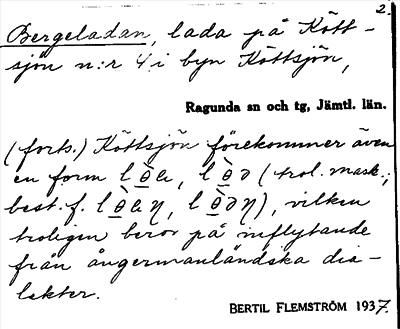 2.
Bergeladan, lada på Kött-
sjön n:r 4 i byn Köttsjön,
Ragunda sn och tg, Jämtl. län.
(forts.) Köttsjön förekommer även
en form l ò̲ a, l ò̲ ə (trol. mask.;
best. f. l ò̲ a ŋ, l ò̲ ə ŋ), vilken
troligen beror på inflytande
från ångermanländska dia-
lekter.
BERTIL FLEMSTRÖM 1937.